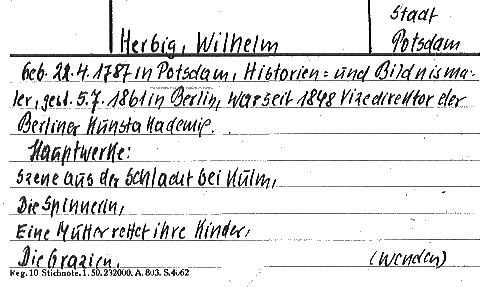 Stadt
Herbig, Wilhelm Potsdam
Geb. 22.4.1787 in Potsdam, Historien= und Bildnisma-
ler, gest. 5.7.1861 in Berlin, war seit 1848 Vizedirektor der
Berliner Kunstakademie.
Hauptwerke:
Szene aus der Schlacht bei Kulm,
Die Spinnerin,
Eine Mutter rettet ihre Kinder,
Die Grazien. (Wenden)
Reg. 10 Stichnote. 1. 50. 232000. A. 803. S. 4. 62